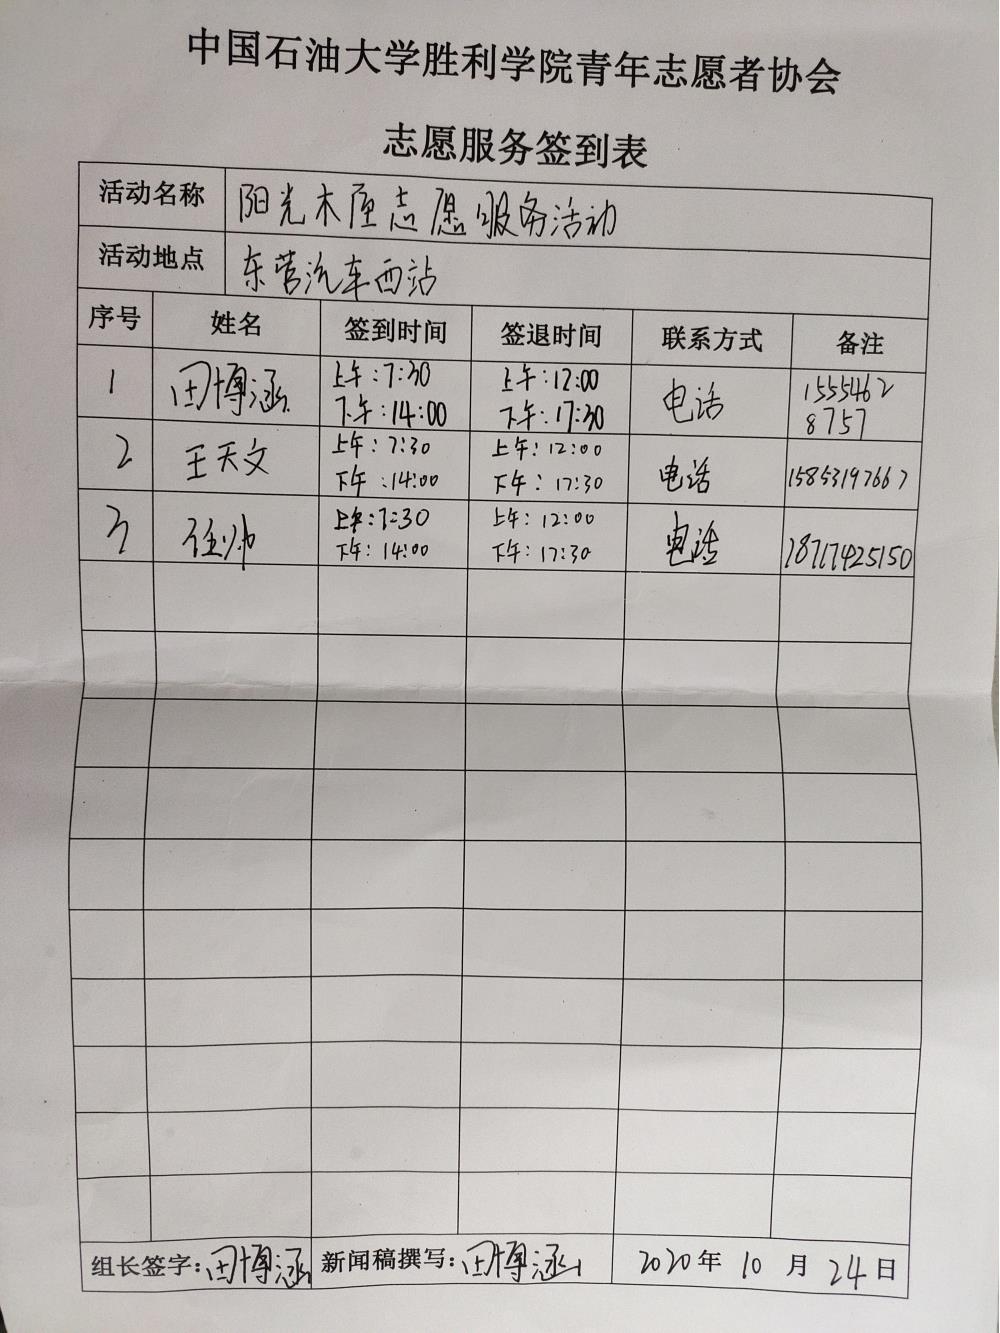 中国石油大学胜利学院青年志愿者协会
志愿服务签到表
活动名称 阳光木屋志愿服务活动
活动地点 东营汽车西站
序号 姓名 签到时间 签退时间 联系方式 备注
1 田博涵 上午:7:30 下午:14:00 上午:12:00 下午:17:30 电话 15554628757
2 王天文 上午:7:30 下午:14:00 上午:12:00 下午:17:30 电话 15853197667
3 任帅 上午:7:30 下午:14:00 上午:12:00 下午:17:30 电话 18717425150
组长签字:田博涵 新闻稿撰写:田博涵 2020年10月24日